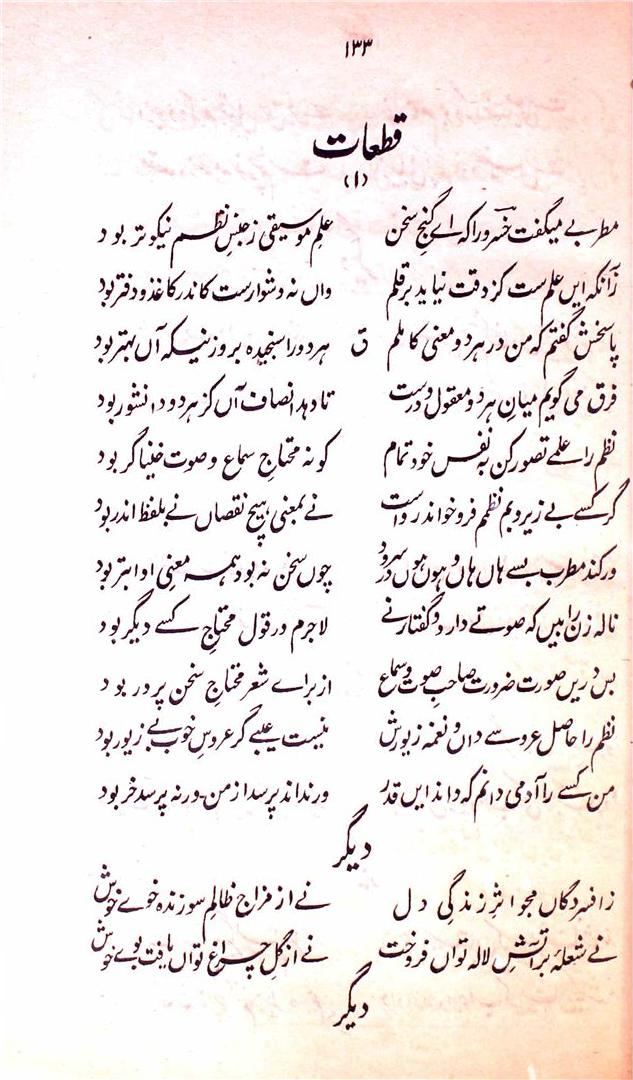 ۱۳۳
قطعات
(۱)
مطربے میگفت خسرو را کہ اے گنج سخن علم موسیقی ز جنس نظم نیکو تر بود
زآنکہ ایں علم ست کز دقت نیاید بر قلم واں نہ دشوارست کاندر کاغذ و دفتر بود
پاسخش گفتم کہ من در ہر دو معنی کاملم ق ہر دو را سنجیدہ بر وزنیکہ آں بہتر بود
فرق می گویم میانِ ہر دو معقول و درست تا دہد انصاف آں کز ہر دو دانشور بود
نظم را علمے تصور کن بہ نفس خود تمام کو نہ محتاجِ سماع و صوت خنیاگر بود
گر کسے بے زیر و بم نظمم فرو خواند رواست نے بمعنی ہیچ نقصاں نے بلفظ اندر بود
ور کند مطرب بسے ہاں ہاں و ہوں ہوں در سرود چوں سخن نہ بود ہمہ معنیِ او ابتر بود
نالہ زن را بیں کہ صوتے دارد و گفتار نے لاجرم در قول محتاجِ کسے دیگر بود
پس دریں صورت ضرورت صاحبِ صوت و سماع از براے شعر محتاجِ سخن پرور بود
نظم را حاصل عروسے داں و نغمہ زیورش نیست عیبے گر عروسِ خوب بے زیور بود
من کسے را آدمی دانم کہ داند ایں قدر ور نداند پرسد از من ور نہ پرسد خر بود
دیگر
ز افسردگاں مجو اثرِ زندگیِ دل نے از مزاج ظالمِ سوزندہ خوے خوش
نے شعلۂ بر آتشِ لالہ تواں فروخت نے از گلِ چراغ تواں یافت بوے خوش
دیگر